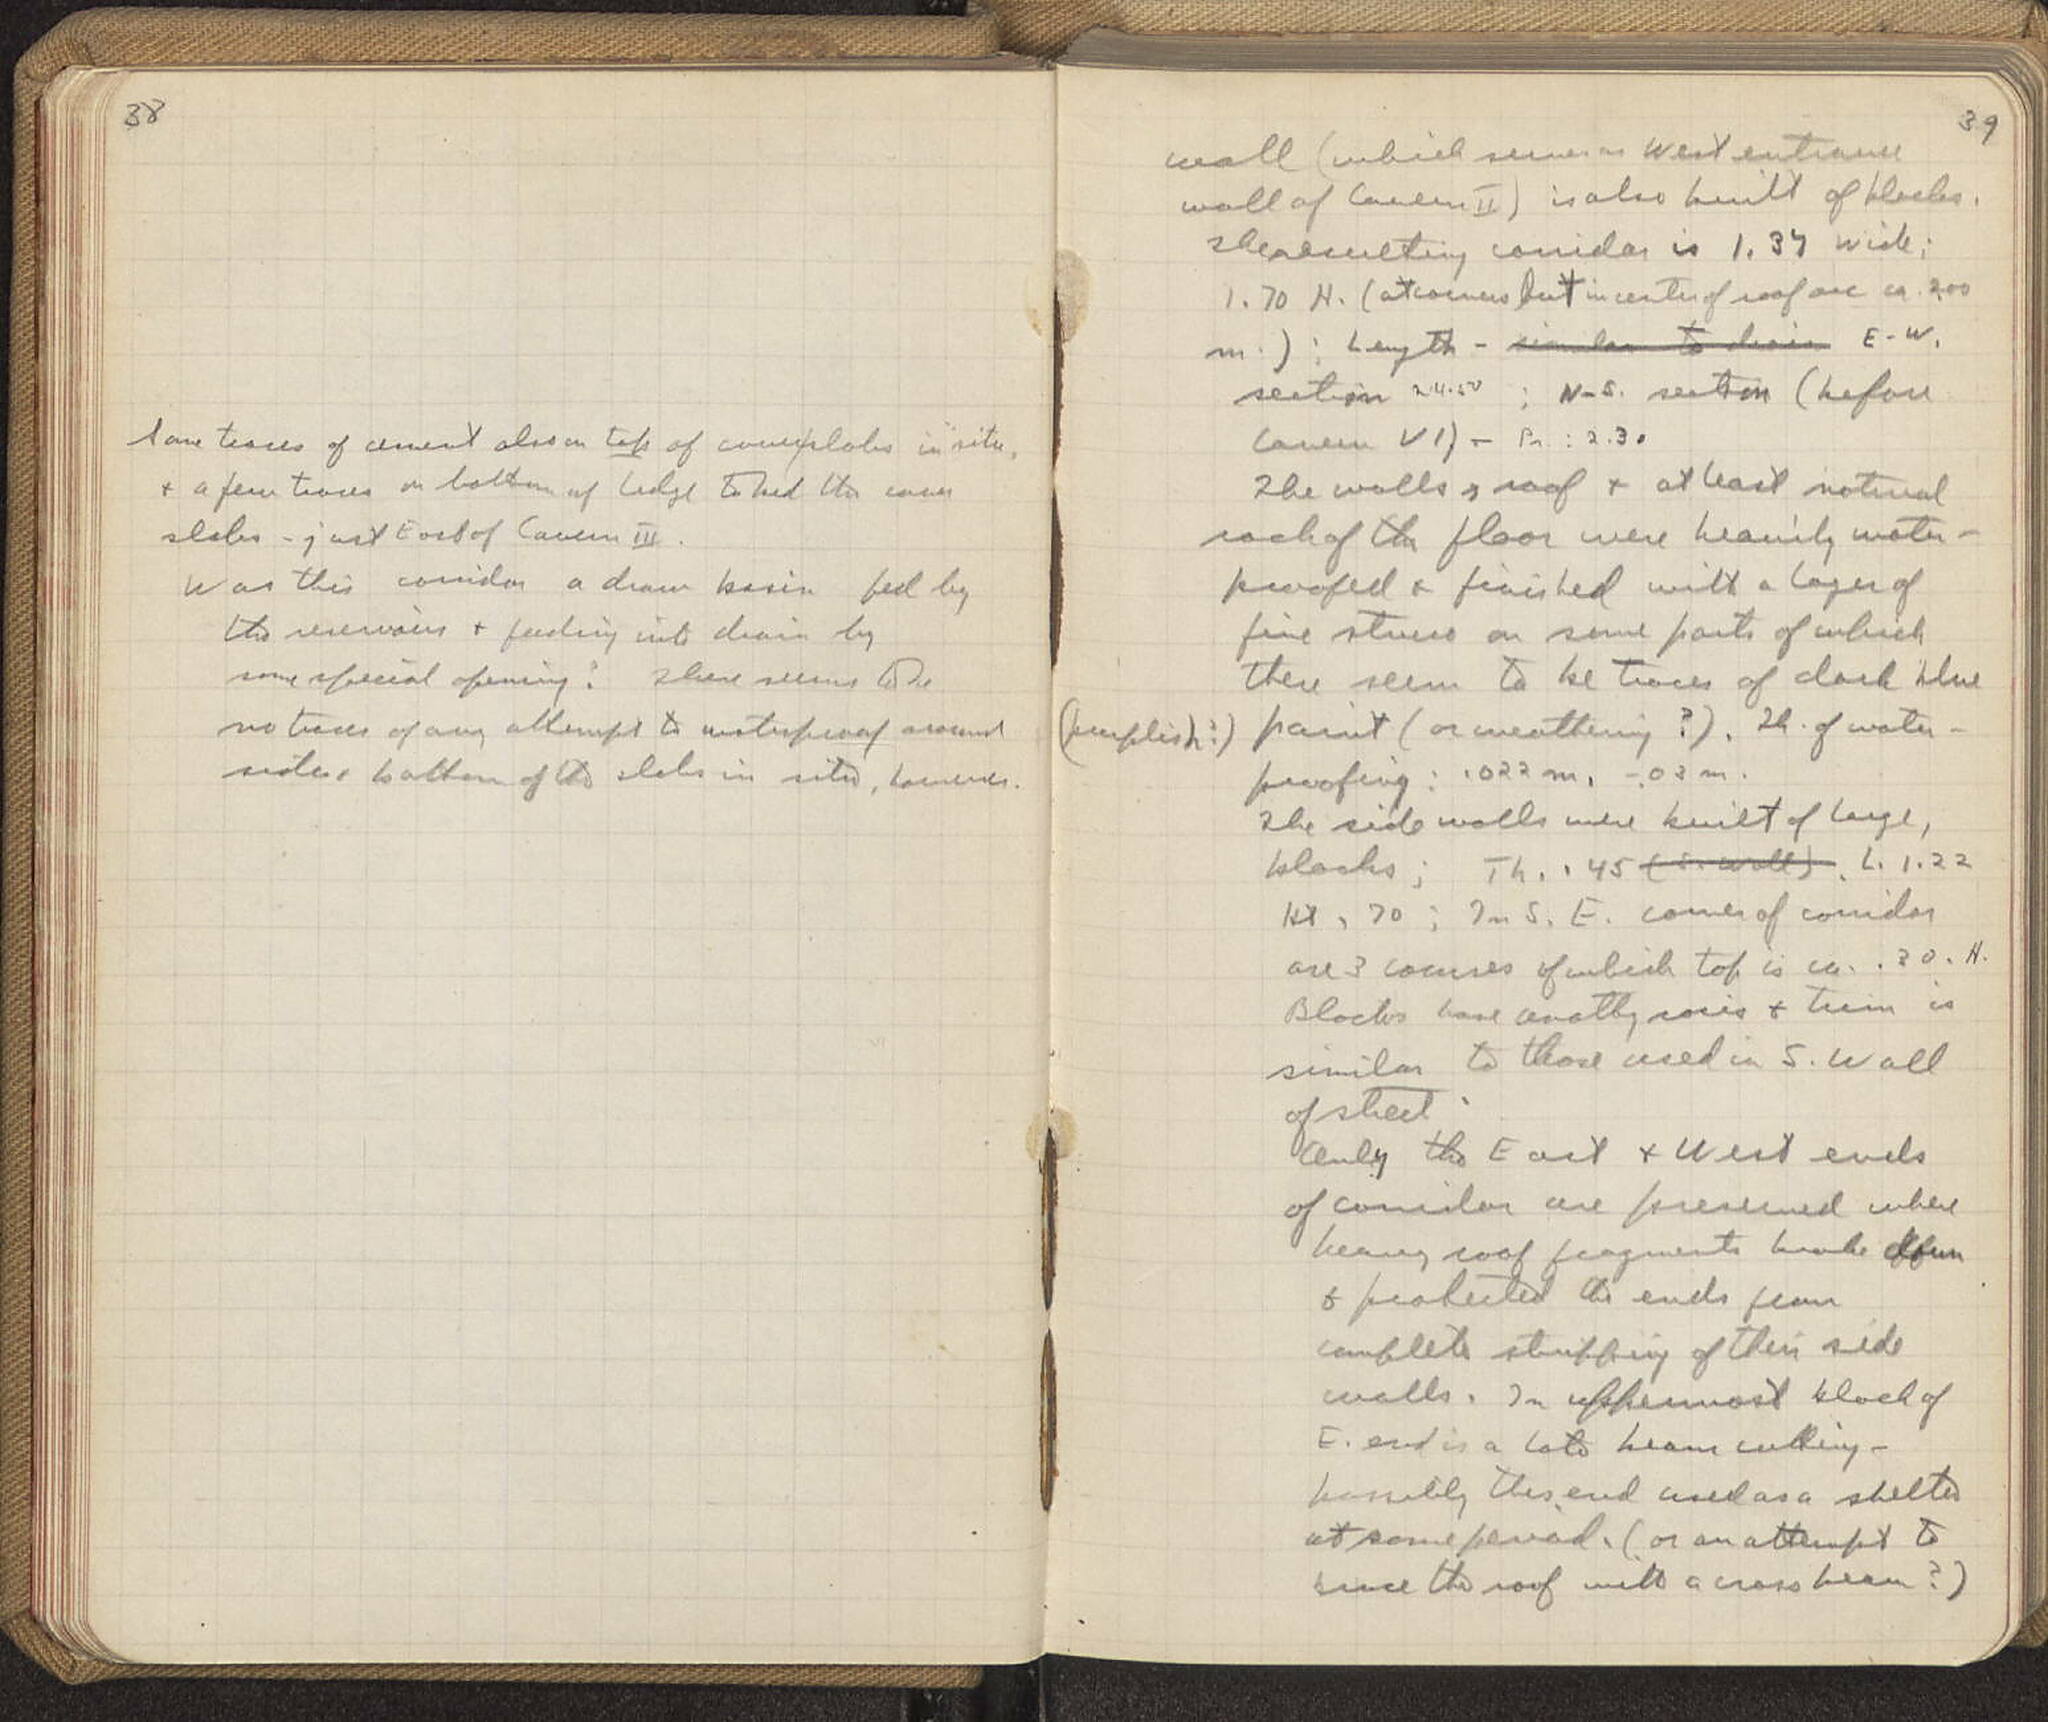 38
Some traces of cement also on top of coverslabs in situ,
+ a few traces on bottom of ledge to bed the cover
slabs - just East of Cavern III.
Was this corridor a draw basin fed by
the reservoirs + feeding into drain by
some special opening? There seems to be
no traces of any attempt to waterproof around
sides + bottom of the slabs in situ, however.
39
wall (which serves as West entrance
wall of Cavern II) is also built of blocks.
The resulting corridor is 1.37 wide;
1.70 H. (at corners but in center of roof arc ca. 2.00
m.); Length - similar to drain E-W.
section 24.50; N-S. section (before
Cavern VI) - Pr.: 2.30
The walls, roof + at least natural
rock of the floor were heavily water-
proofed + finished with a layer of
fine stucco on some parts of which
there seem to be traces of dark blue
(purplish?) paint (or weathering?). Th. of water-
proofing: .022 m. - .03 m.
The side walls were built of large,
blocks; Th. .45 (S. Wall). L. 1.22
Ht .70; In S. E. corner of corridor
are 3 courses of which top is ca. .30. H.
Blocks have anathyrosis + trim is
similar to those used in S. Wall
of street.
Only the East + West ends
of corridor are preserved where
heavy roof fragments broke down
+ protected the ends from
complete stripping of their side
walls. In uppermost block of
E. end is a late beam cutting -
possibly this end used as a shelter
at some period. (or an attempt to
brace the roof with a cross beam?)